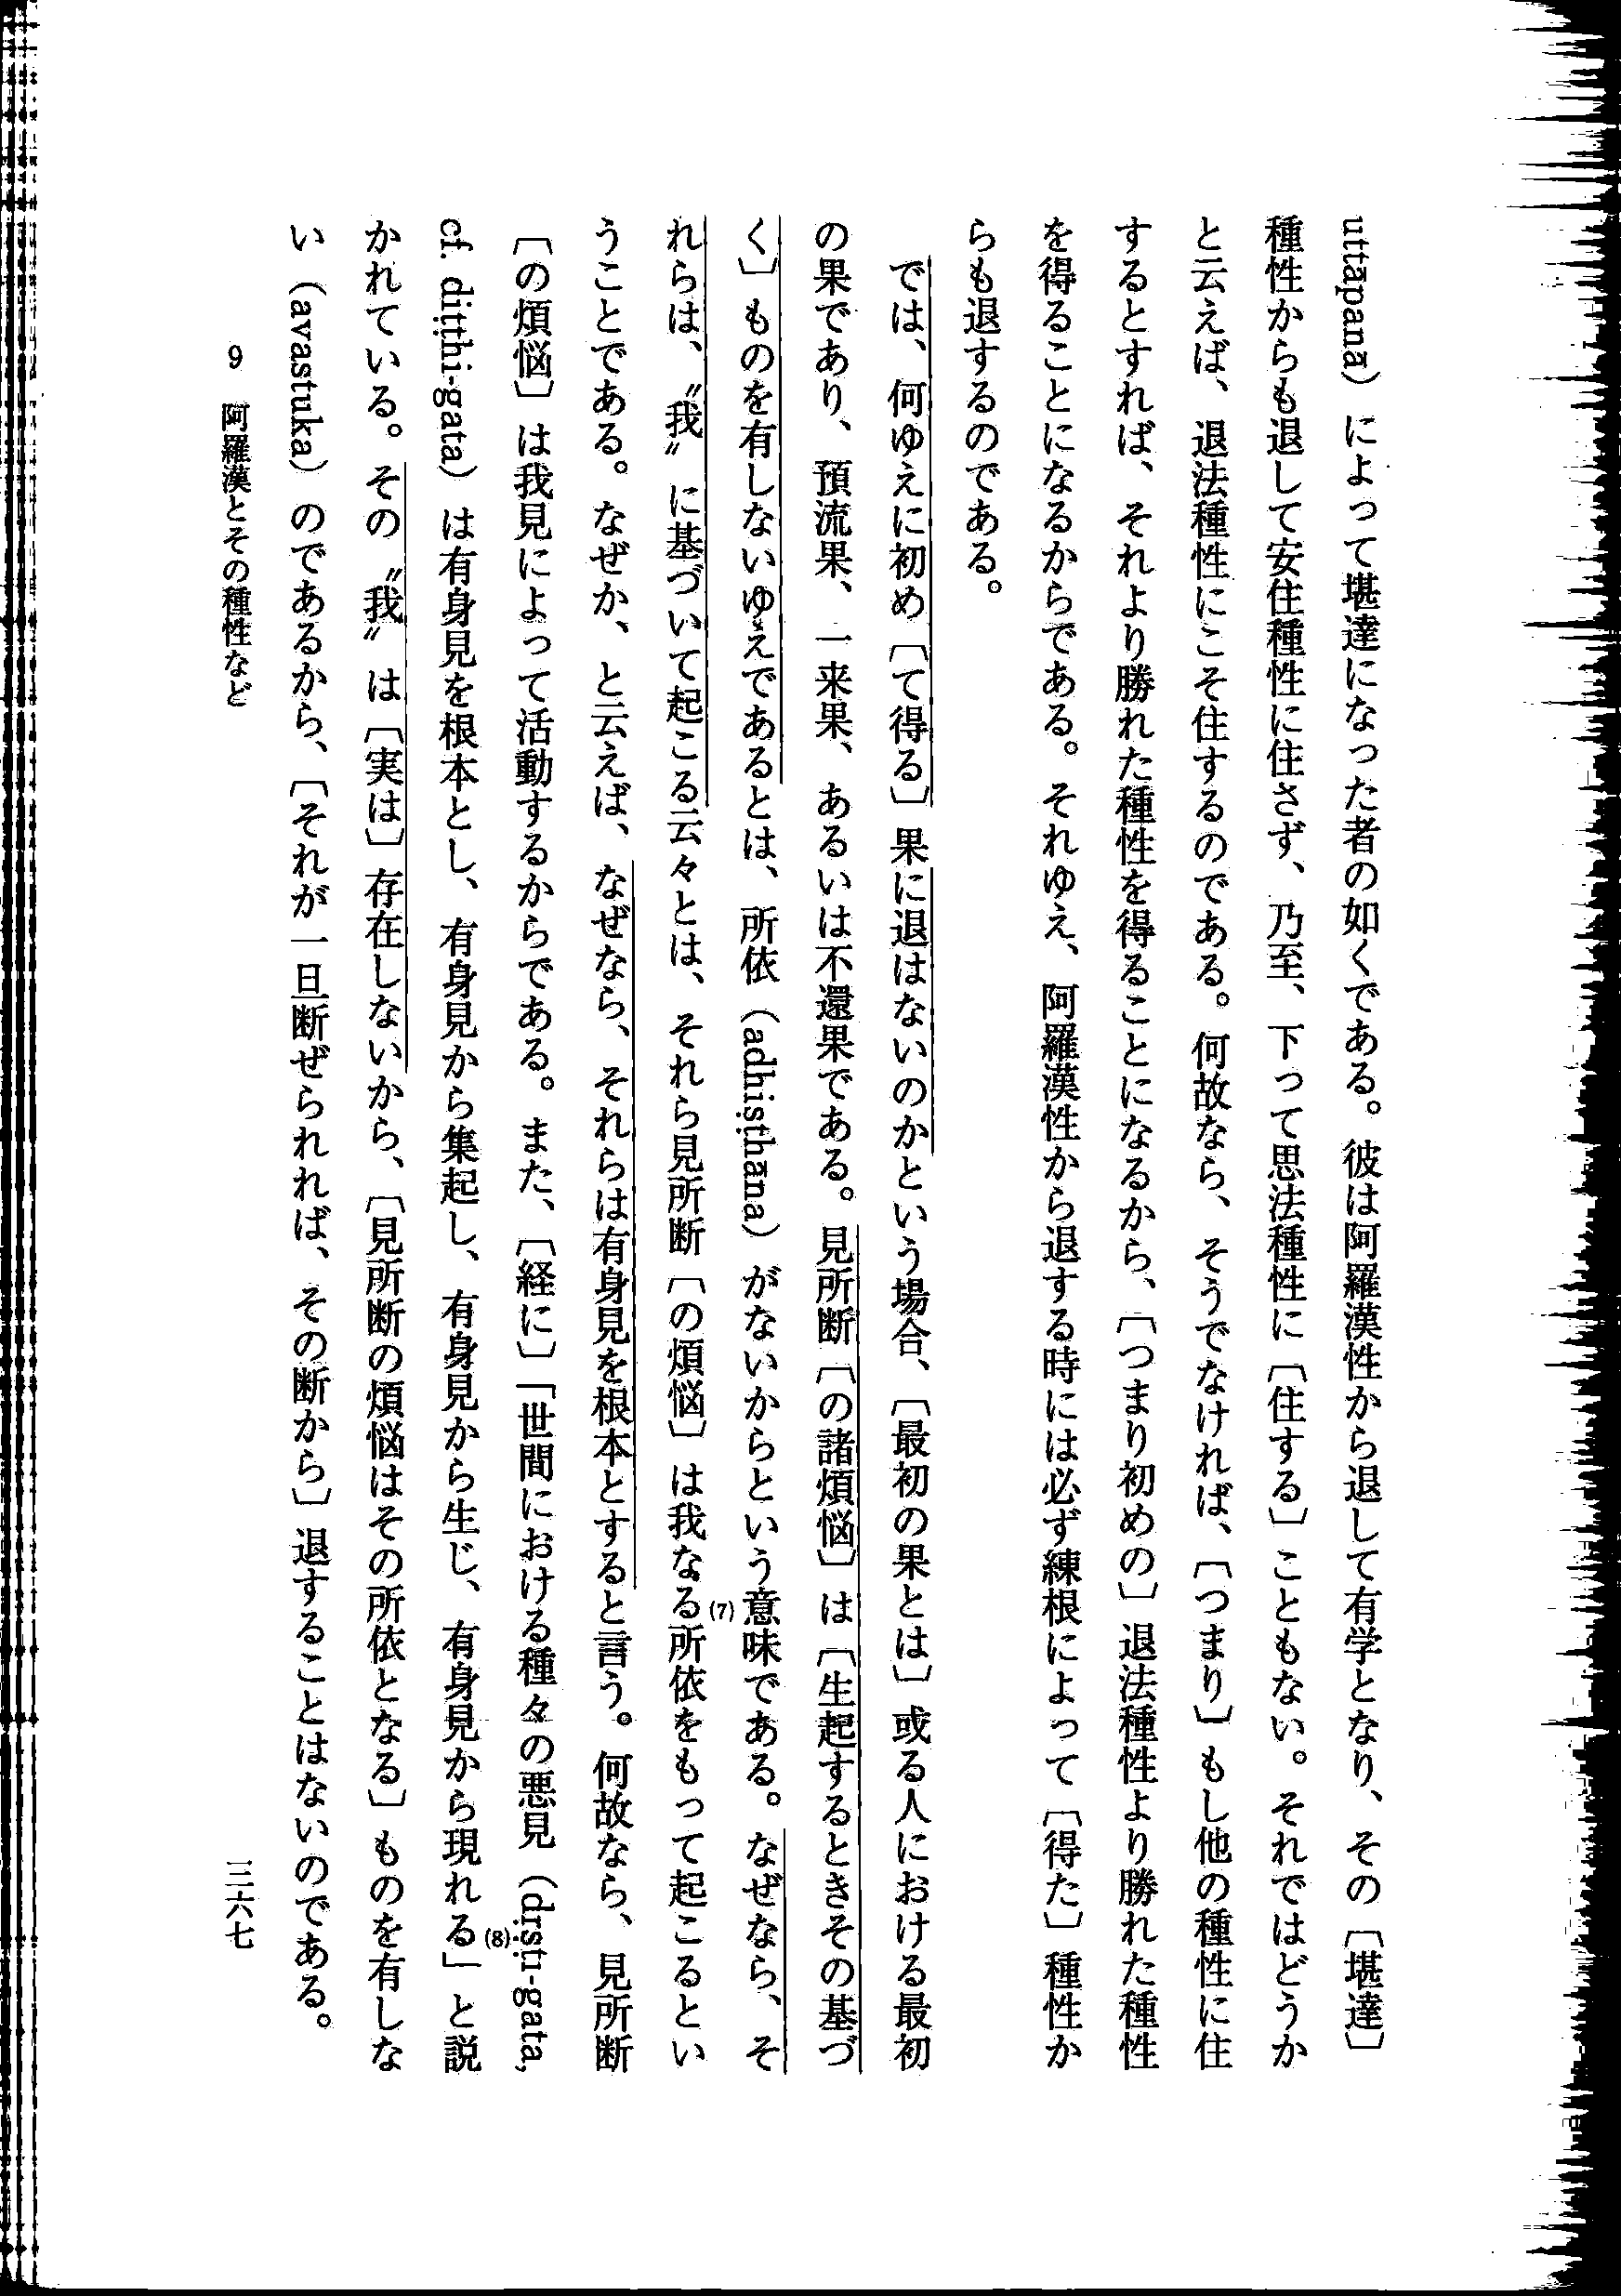 uttāpanā）によって堪達になった者の如くである。彼は阿羅漢性から退して有学となり、その〔堪達〕
種性からも退して安住種性に住さず、乃至、下って思法種性に〔住する〕こともない。それではどうか
と云えば、退法種性にこそ住するのである。何故なら、そうでなければ、〔つまり〕もし他の種性に住
するとすれば、それより勝れた種性を得ることになるから、〔つまり初めの〕退法種性より勝れた種性
を得ることになるからである。それゆえ、阿羅漢性から退する時には必ず練根によって〔得た〕種性か
らも退するのである。
では、何ゆえに初め〔て得る〕果に退はないのかという場合、〔最初の果とは〕或る人における最初
の果であり、預流果、一来果、あるいは不還果である。見所断〔の諸煩悩〕は〔生起するときその基づ
く〕ものを有しないゆえであるとは、所依（adhiṣṭhāna）がないからという意味である。なぜなら、そ
れらは、〝我〟に基づいて起こる云々とは、それら見所断〔の煩悩〕は我なる所依をもって起こるとい
(7)
うことである。なぜか、と云えば、なぜなら、それらは有身見を根本とすると言う。何故なら、見所断
〔の煩悩〕は我見によって活動するからである。また、〔経に〕「世間における種々の悪見（dṛṣṭi-gata,
cf. diṭṭhi-gata）は有身見を根本とし、有身見から集起し、有身見から生じ、有身見から現れる」と説
(8)
かれている。その〝我〟は〔実は〕存在しないから、〔見所断の煩悩はその所依となる〕ものを有しな
い（avastuka）のであるから、〔それが一旦断ぜられれば、その断から〕退することはないのである。
9　阿羅漢とその種性など
三六七